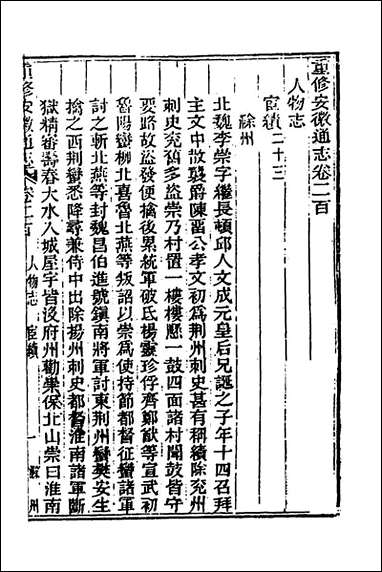 重修安徽通志卷二百
人物志
宦績二十三
潁州
北魏李崇字繼長頓邱人文成元皇后兄誕之子年十四召拜
主文中散襲爵陳畱公孝文初為荆州刺史甚有稱績除兖州
刺史兖舊多盜崇乃村置一樓樓懸一鼓四面諸村聞鼓皆守
要路故盜發便擒後累統軍破氐楊靈珍俘齊鄭猷等宣武初
魯陽蠻柳北喜魯北燕等叛詔以崇為使持節都督征蠻諸軍
討之斬北燕等封魏昌伯進號鎮南將軍討東荆州蠻樊安生
擒之西荆蠻悉降尋兼侍中出除揚州刺史都督淮南諸軍斷
獄精審壽春大水入城屋宇皆沒府州勸崇保北山崇曰淮南
重修安徽通志
卷二百
人物志
宦績
一
州